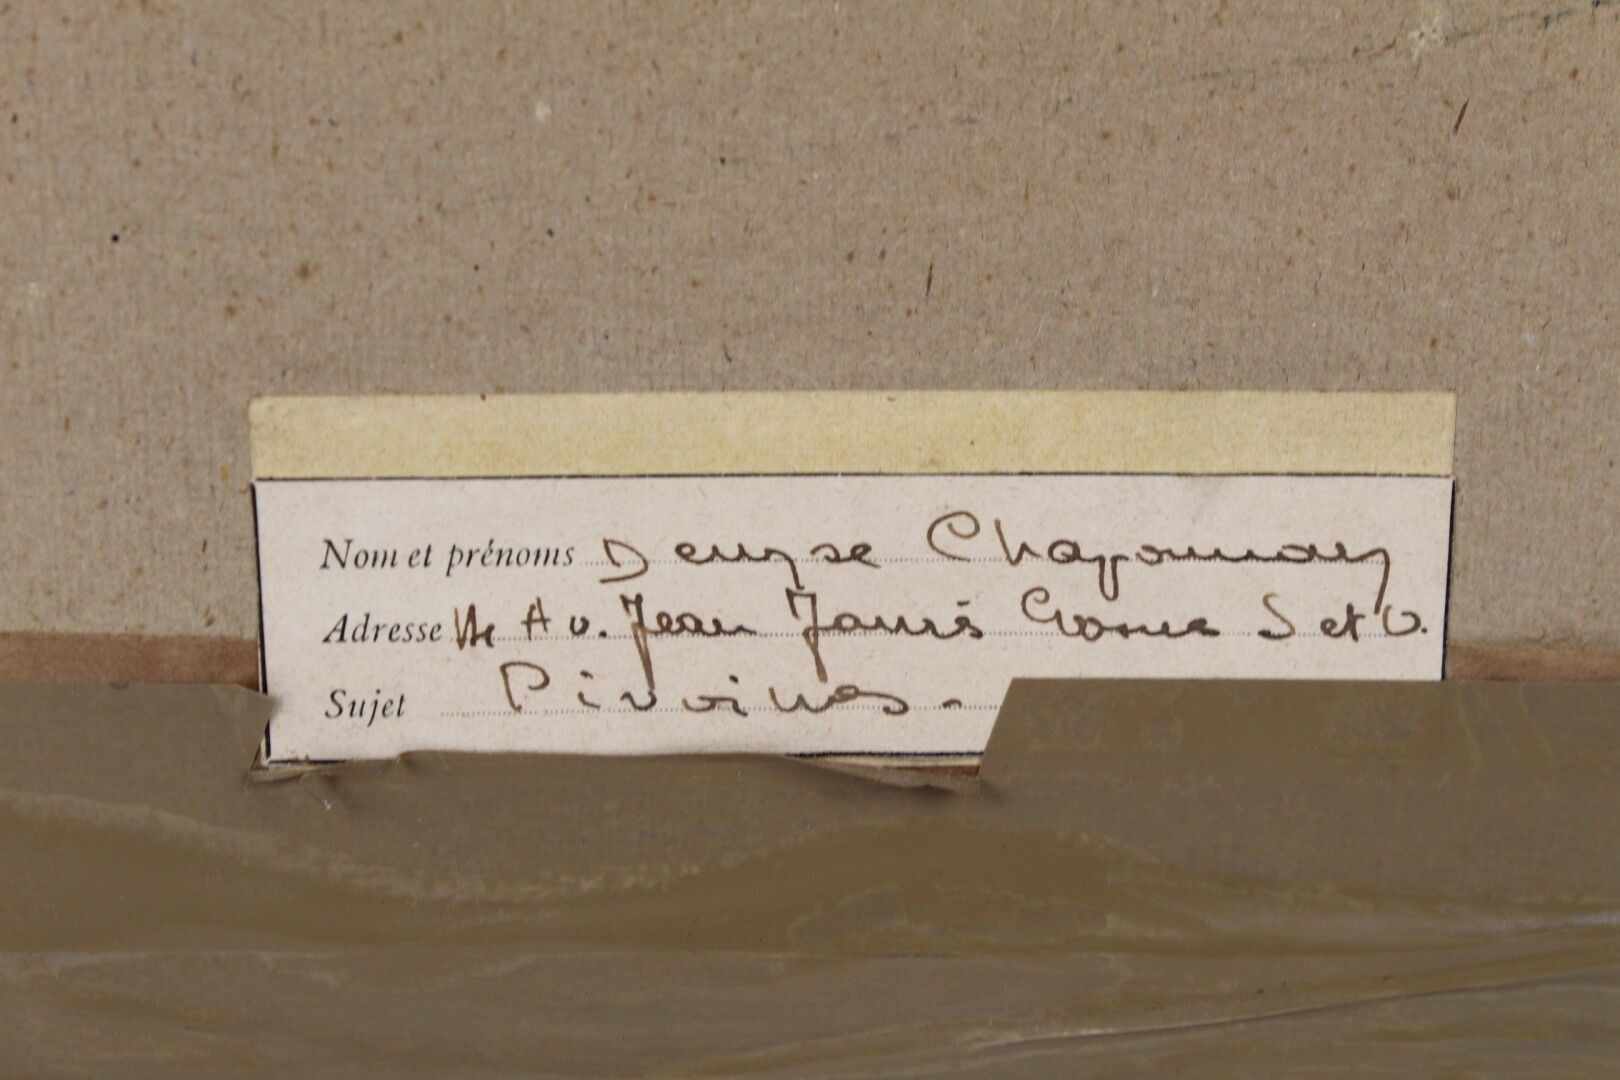 Nom et prénoms Denyse Chaponnay
Adresse Av. Jean Jaurès Crosne S et O.
Sujet Pivoines.